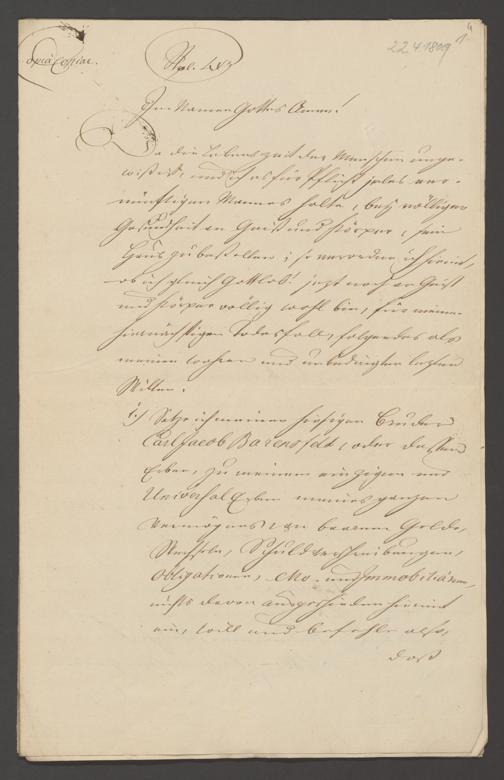 Copia Copiae.
22 4 1809
1
Im Namen Gottes Amen!
Da die Lebenszeit der Menschen unge-
wiß ist, und ich es für Pflicht jedes ver-
nünftigen Mannes halte, bey völliger
Gesundheit an Geist und Körper, sein
Haus zu bestellen; so verordne ich hiemit,
ob ich gleich Gottlob! jezt noch an Geist
und Körper völlig wohl bin, für meinen
hiernächstigen Todesfall, folgendes als
meinen wahren und unbedingten lezten
Willen.
1.) Setze ich meinen hiesigen Bruder
Carl Jacob Barensfeld, oder dessen
Erben, zu meinem einzigen und
Universal Erben meines ganzen
Vermögens an baarem Gelde,
Wechseln, Schuldverschreibungen,
Obligationen, Mo- und Immobiliären,
nichts davon ausgeschieden hiemit
ein, will und befehle also,
daß